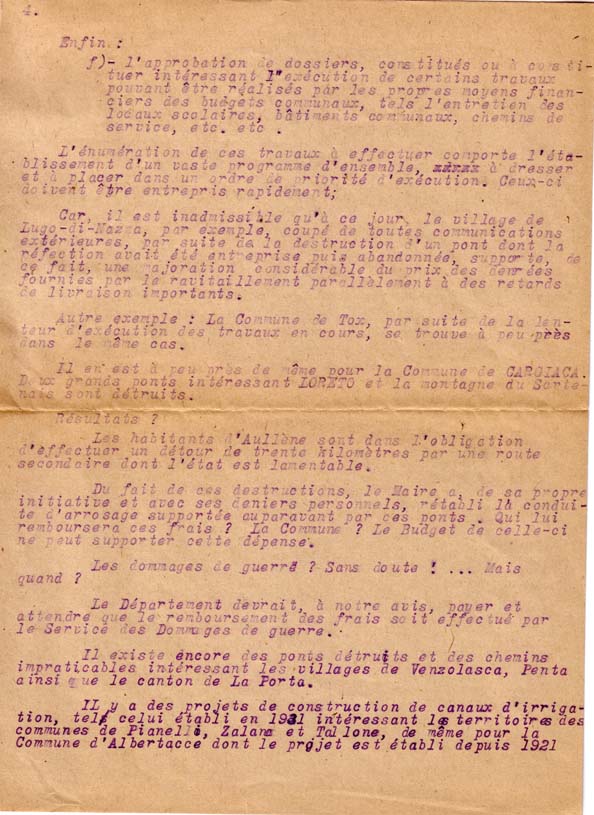 4.
Enfin :
f)- l'approbation de dossiers, constitués ou à consti-
tuer intéressant l'exécution de certains travaux
pouvant être réalisés par les propres moyens finan-
ciers des budgets communaux, tels l'entretien des
locaux scolaires, bâtiments communaux, chemins de
service, etc. etc .
L'énumération de ces travaux à effectuer comporte l'éta-
blissement d'un vaste programme d'ensemble, xxxxx à dresser
et à placer dans un ordre de priorité d'exécution. Ceux-ci
doivent être entrepris rapidement;
Car, il est inadmissible qu'à ce jour, le village de
Lugo-di-Nazza, par exemple, coupé de toutes communications
extérieures, par suite de la destruction d'un pont dont la
réfection avait été entreprise puis abandonnée, supporte, de
ce fait, une majoration considérable du prix des denrées
fournies par le ravitaillement parallèlement à des retards
de livraison importants.
Autre exemple : La Commune de Tox, par suite de la len-
teur d'exécution des travaux en cours, se trouve à peu près
dans le même cas.
Il en est à peu près de même pour la Commune de CARGIACA.
Deux grands ponts intéressant LORETO et la montagne du Sarte-
nais sont détruits.
Résultats ?
Les habitants d'Aullène sont dans l'obligation
d'effectuer un détour de trente kilomètres par une route
secondaire dont l'état est lamentable.
Du fait de ces destructions, le Maire a, de sa propre
initiative et avec ses deniers personnels, rétabli la condui-
te d'arrosage supportée auparavant par ces ponts . Qui lui
remboursera ces frais ? La Commune ? Le Budget de celle-ci
ne peut supporter cette dépense.
Les dommages de guerre ? Sans doute ! ... Mais
quand ?
Le Département devrait, à notre avis, payer et
attendre que le remboursement des frais soit effectué par
le Service des Dommages de guerre.
Il existe encore des ponts détruits et des chemins
impraticables intéressant les villages de Venzolasca, Penta
ainsi que le canton de La Porta.
IL y a des projets de construction de canaux d'irriga-
tion, tels celui établi en 1931 intéressant les territoires des
communes de Pianello, Zalana et Tallone, de même pour la
Commune d'Albertacce dont le projet est établi depuis 1921